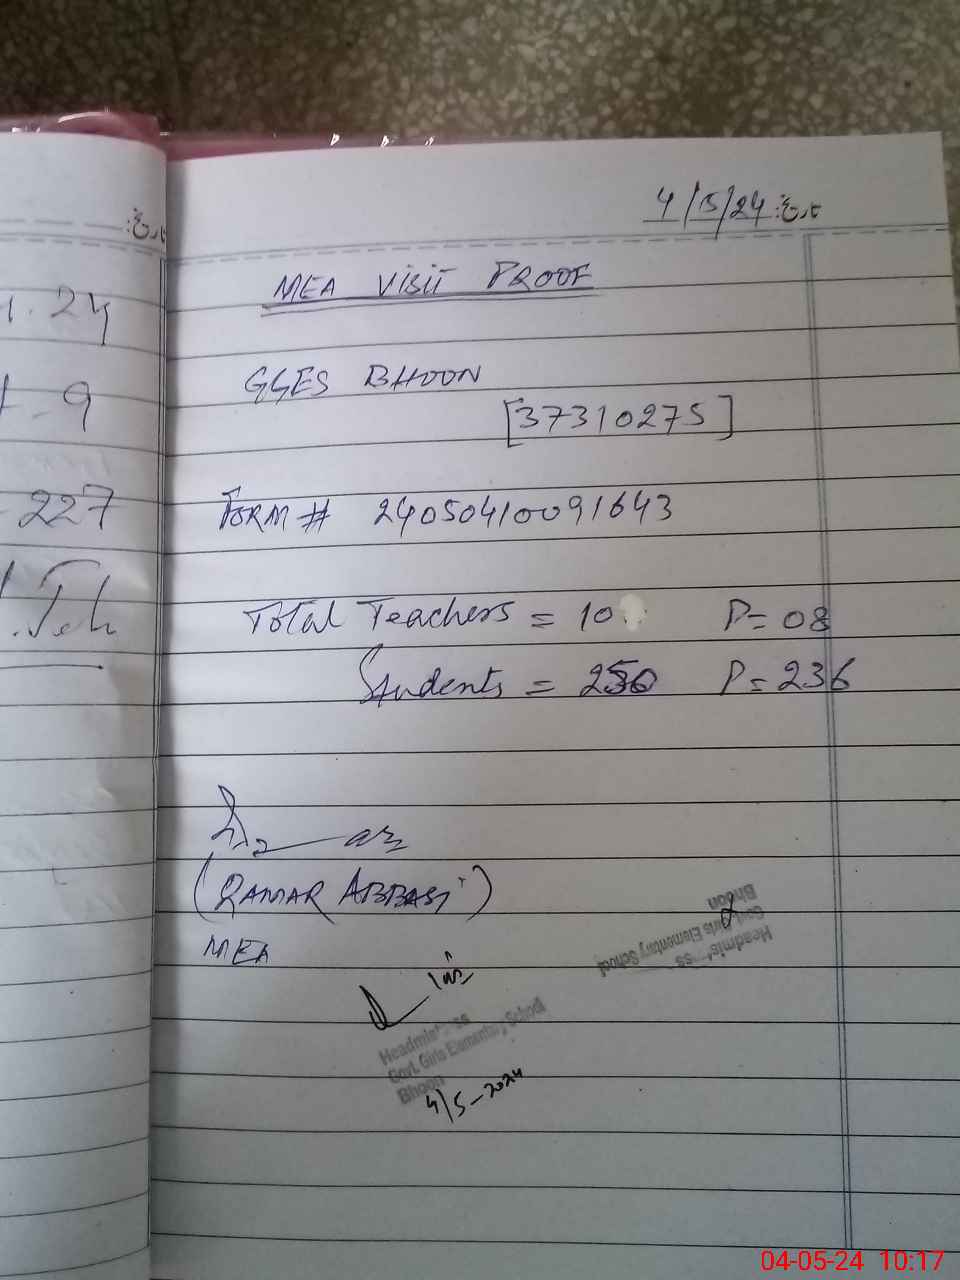 تاریخ:
. 24
- 9
227
4/5/24 تاریخ:
MEA VISIT PROOF
GGES BHOON
[37310275]
FORM # 24050410091643
Total Teachers = 10 P= 08
Students = 250 P= 236
(QAMAR ABBASI)
MEA
Headmistress
Govt. Girls Elementary School
Bhoon
Headmistress
Govt. Girls Elementary School
Bhoon
4/5-2024
04-05-24 10:17